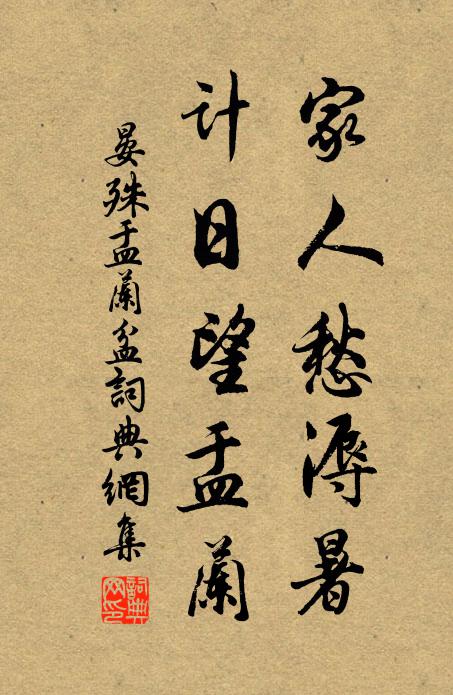 家人愁溽暑
计日望盂蘭
晏殊盂蘭盆詞典網集
詞典网印